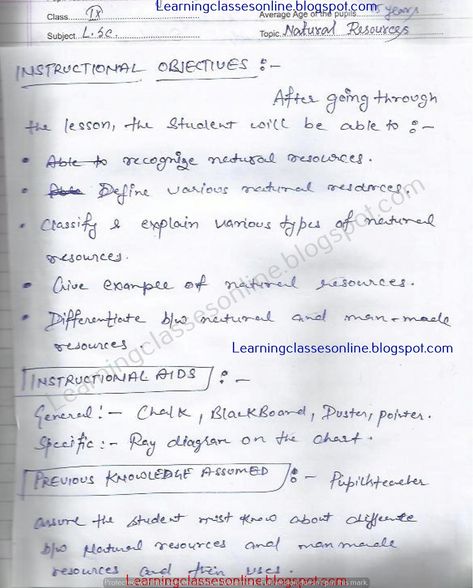 Learningclassesonline.blogspot.com
Class IX Average Age of the pupils 15 years
Subject L.Sc. Topic Natural Resources
INSTRUCTIONAL OBJECTIVES :-
After going through
the lesson, the student will be able to :-
• Able to recognize natural resources.
• Able Define various natural resources.
• Classify & explain various types of natural
resources.
• Give example of natural resources.
• Differentiate b/w natural and man-made
resources.
Learningclassesonline.blogspot.com
Learningclassesonline.blogspot.com
INSTRUCTIONAL AIDS :-
General :- Chalk, BlackBoard, Duster, pointer.
Specific :- Ray diagram on the chart.
PREVIOUS KNOWLEDGE ASSUMED :- Pupilteacher
assure the student must know about difference
b/w Natural resources and man made
resources and their uses.
Learningclassesonline.blogspot.com